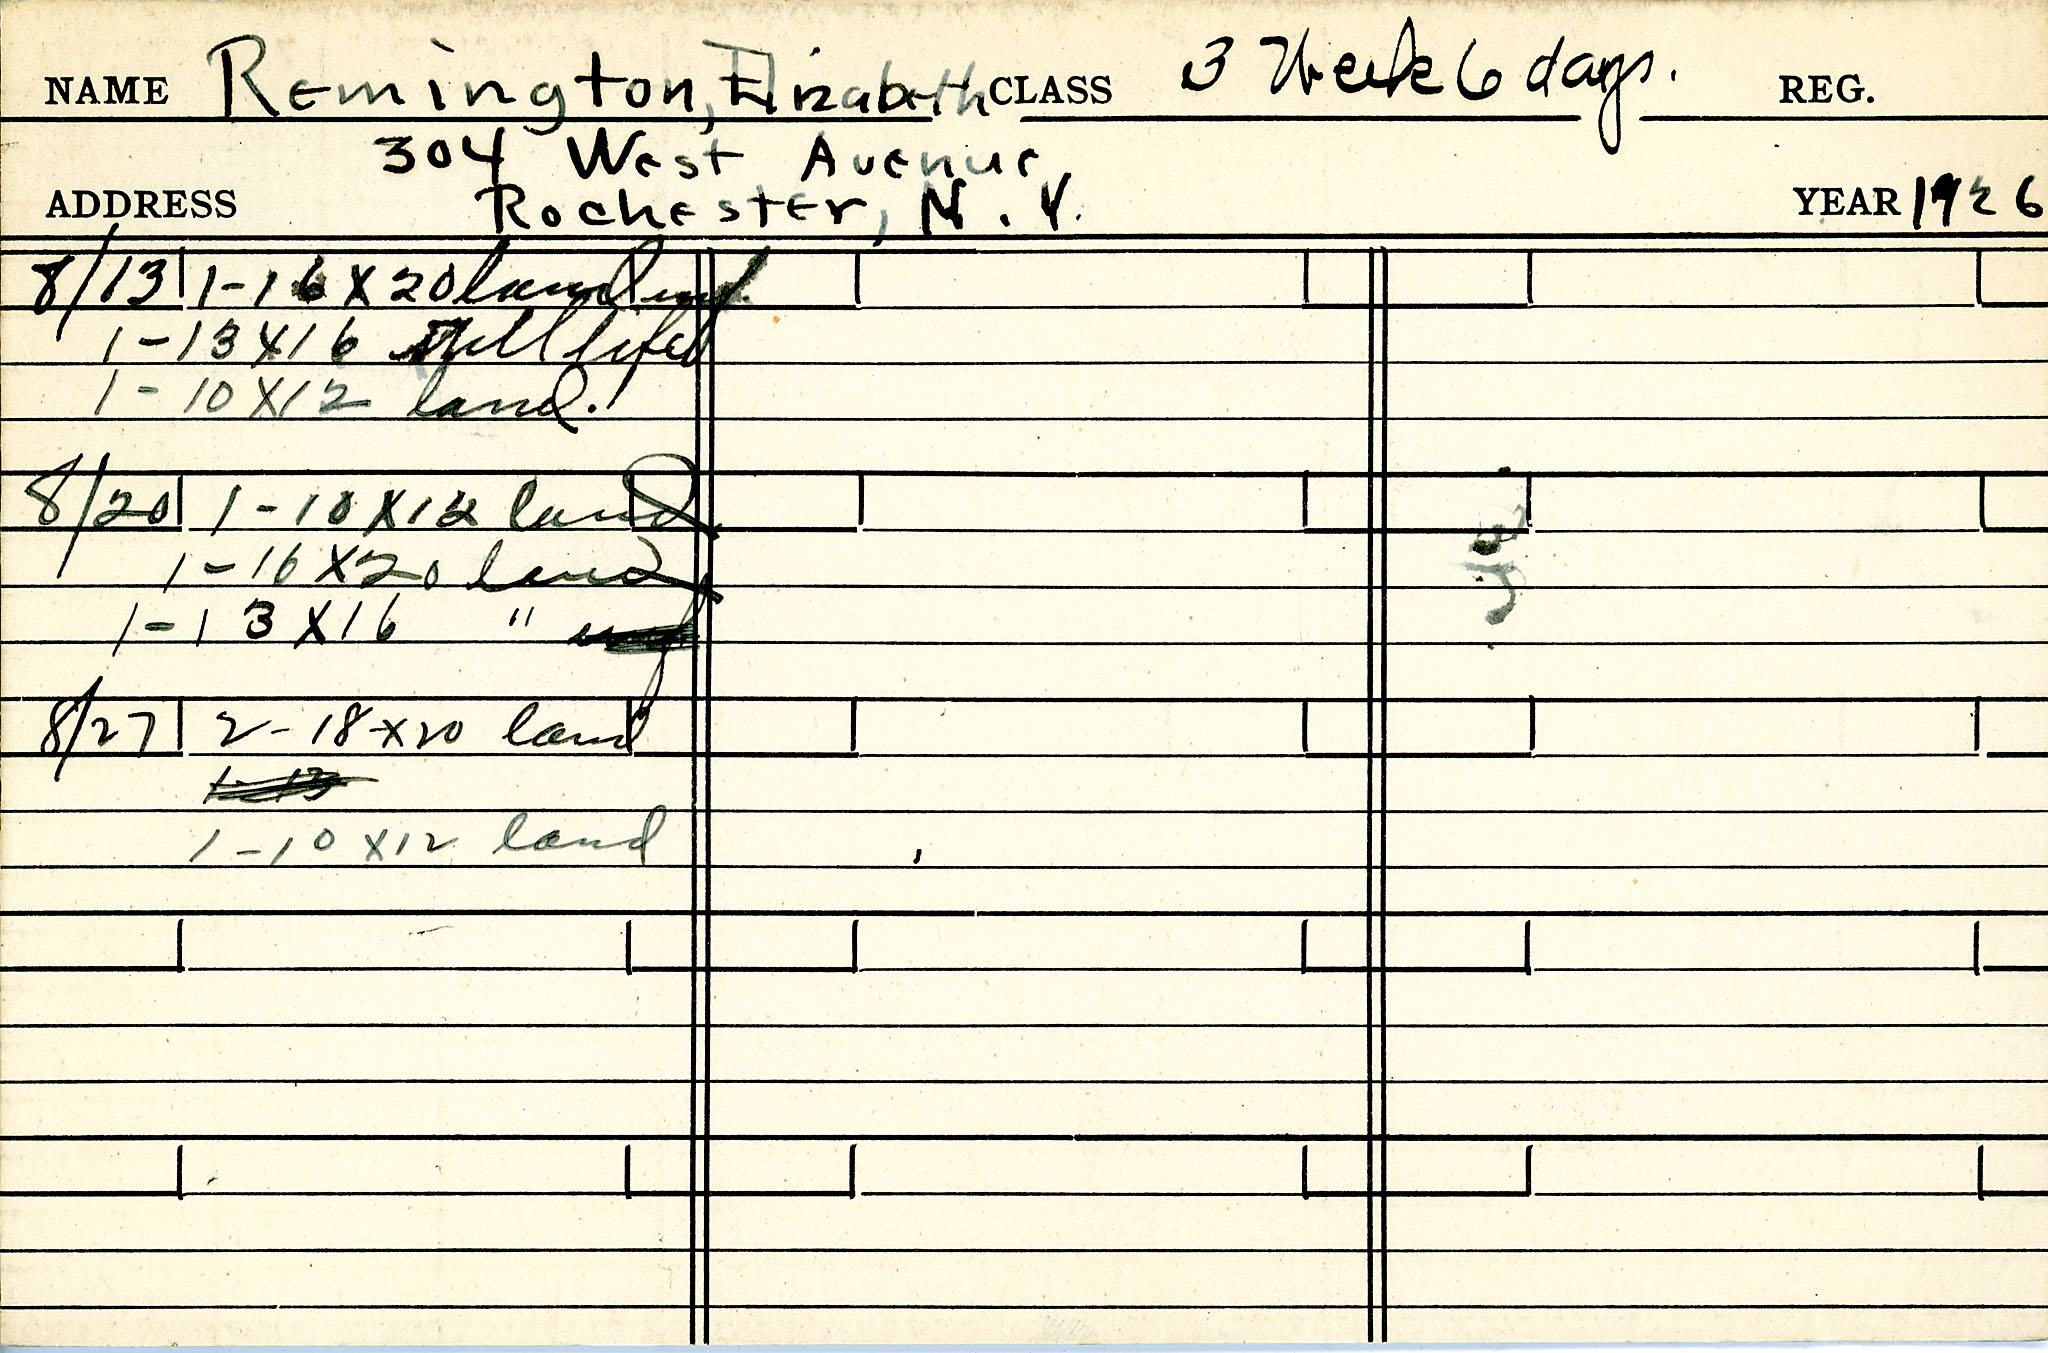 NAME Remington, Elizabeth CLASS 3 Week 6 days. REG.
304 West Avenue
ADDRESS Rochester, N.Y. YEAR 1926
8/13 1-16 X 20 land
1-13 X 16 still life
1-10 X 12 land.
8/20 1-10 X 12 land
1-16 X 20 land
1-13 X 16 "
8/27 2-18 X 20 land
1-10 X 12 land